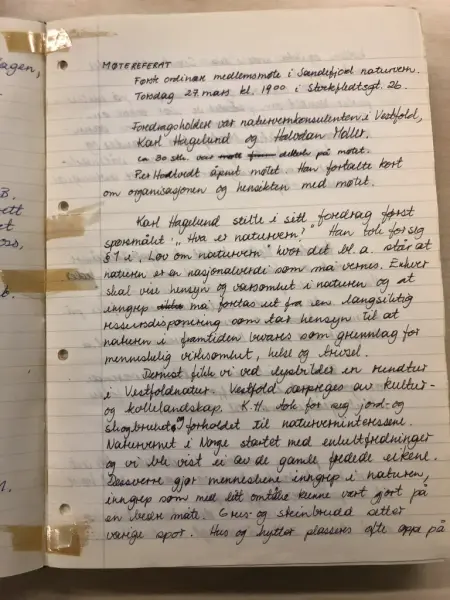 agen,
B.
ett
et
MØTEREFERAT
Første ordinær medlemsmøte i Sandefjord naturvern.
Torsdag 27. mars kl. 1900 i Stockfledtsgt. 26.
Foredragsholdere var naturvernkonsulenten i Vestfold,
Karl Hagelund og Halvdan Møller.
ca 30 stk. var deltok på møtet.
Per åpnet møtet. Han fortalte kort
om organisasjonen og hensikten med møtet.
Karl Hagelund stilte i sitt foredrag først
spørsmålet: "Hva er naturvern?" Han tok for seg
§ 1 i „Lov om naturvern" hvor det bl.a. står at
naturen er en nasjonalverdi som må vernes. Enhver
skal vise hensyn og varsomhet i naturen og at
inngrep må foretas ut fra en langsiktig
ressursdisponering som tar hensyn til at
naturen i framtiden bevares som grunnlag for
menneskelig virksomhet, helse og trivsel.
Dernest fikk vi ved lysbilder en rundtur
i Vestfoldnatur. Vestfold særpreges av kultur-
og kollelandskap. K.H. tok for seg jord- og
skogbruk og forholdet til naturverninteressene.
Naturvernet i Norge startet med enkeltfredninger
og vi ble vist ei av de gamle fredede eikene.
Dessverre gjør menneskene inngrep i naturen,
inngrep som med litt omtanke kunne vært gjort på
en bedre måte. Grus- og steinbrudd setter
varige spor. Hus og hytter plasseres ofte oppå